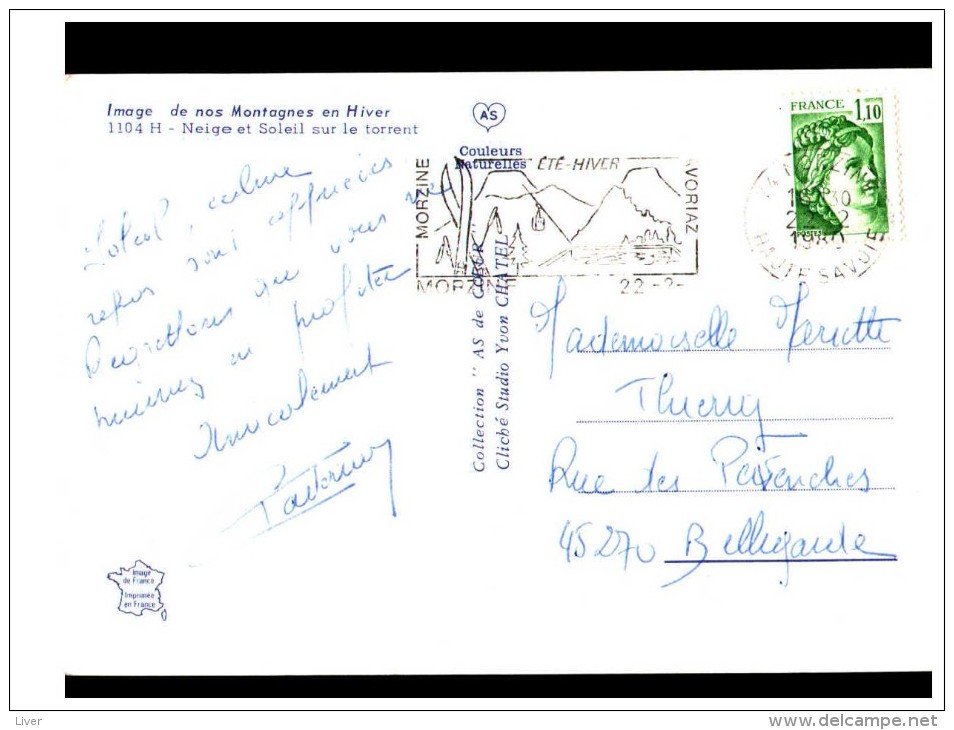 Image de nos Montagnes en Hiver
1104 H - Neige et Soleil sur le torrent
AS
Couleurs
Naturelles
ÉTÉ-HIVER
MORZINE
AVORIAZ
MORZINE 22-2-
FRANCE
1,10
POSTES
30
1980
HAUTE SAVOIE
Soleil, calme
repos sont appréciés
Projetons que vous
puissiez en profiter
Amicalement
Collection " AS de CŒUR "
Cliché Studio Yvon CHATEL
Mademoiselle Mariette
Thierry
Rue des Pervenches
45270 Bellegarde
Image
de France
Imprimée
en France
Liver
www.delcampe.net